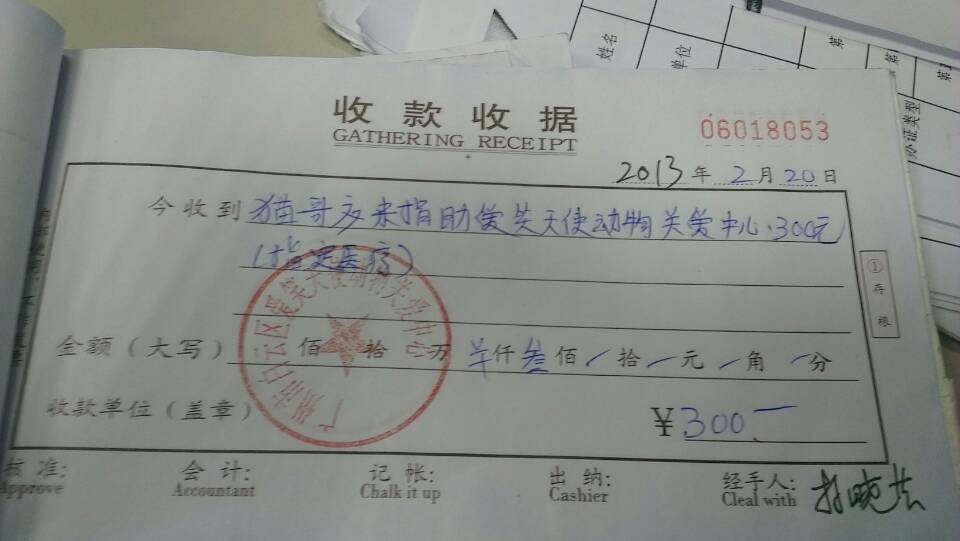 收款收据
GATHERING RECEIPT
06018053
2013年2月20日
今收到猫哥哥来捐助爱笑天使动物关爱中心.300元
(指定医疗)
金额(大写) 佰 拾 万 羊仟叁佰/拾/元/角/分
收款单位(盖章) ¥300.一
广州市白云区爱笑天使动物关爱中心
①存根
核准: 会计: 记帐: 出纳: 经手人:
Approve Accountant Chalk it up Cashier Cleal with
姓名
单位
办证类型
第
第
第